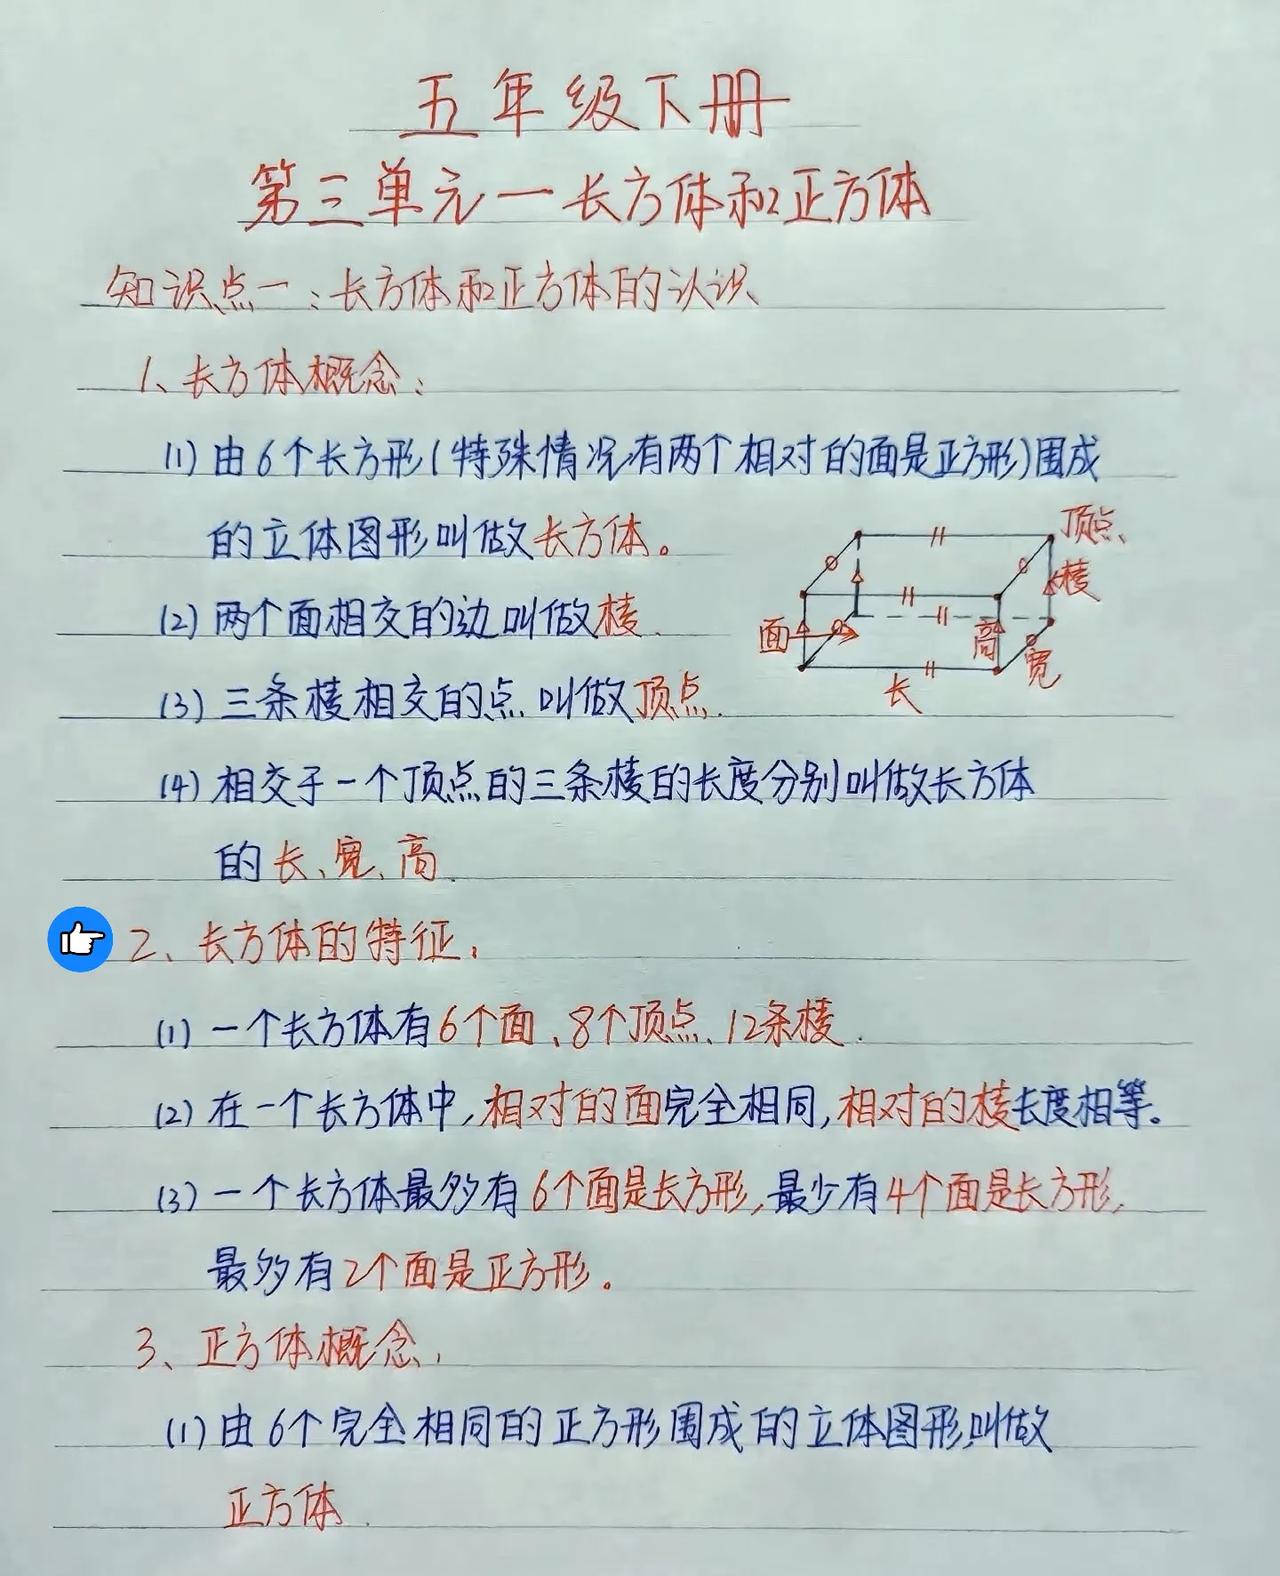 五年级下册
第三单元一长方体和正方体
知识点一：长方体和正方体的认识
1、长方体概念：
(1) 由6个长方形(特殊情况有两个相对的面是正方形)围成
的立体图形叫做长方体。
顶点
棱
(2) 两个面相交的边叫做棱.
面
高
宽
长
(3) 三条棱相交的点叫做顶点.
(4) 相交于一个顶点的三条棱的长度分别叫做长方体
的长、宽、高.
2、长方体的特征.
(1) 一个长方体有6个面、8个顶点、12条棱.
(2) 在一个长方体中,相对的面完全相同,相对的棱长度相等。
(3) 一个长方体最多有6个面是长方形,最少有4个面是长方形,
最多有2个面是正方形.
3、正方体概念.
(1) 由6个完全相同的正方形围成的立体图形,叫做
正方体.